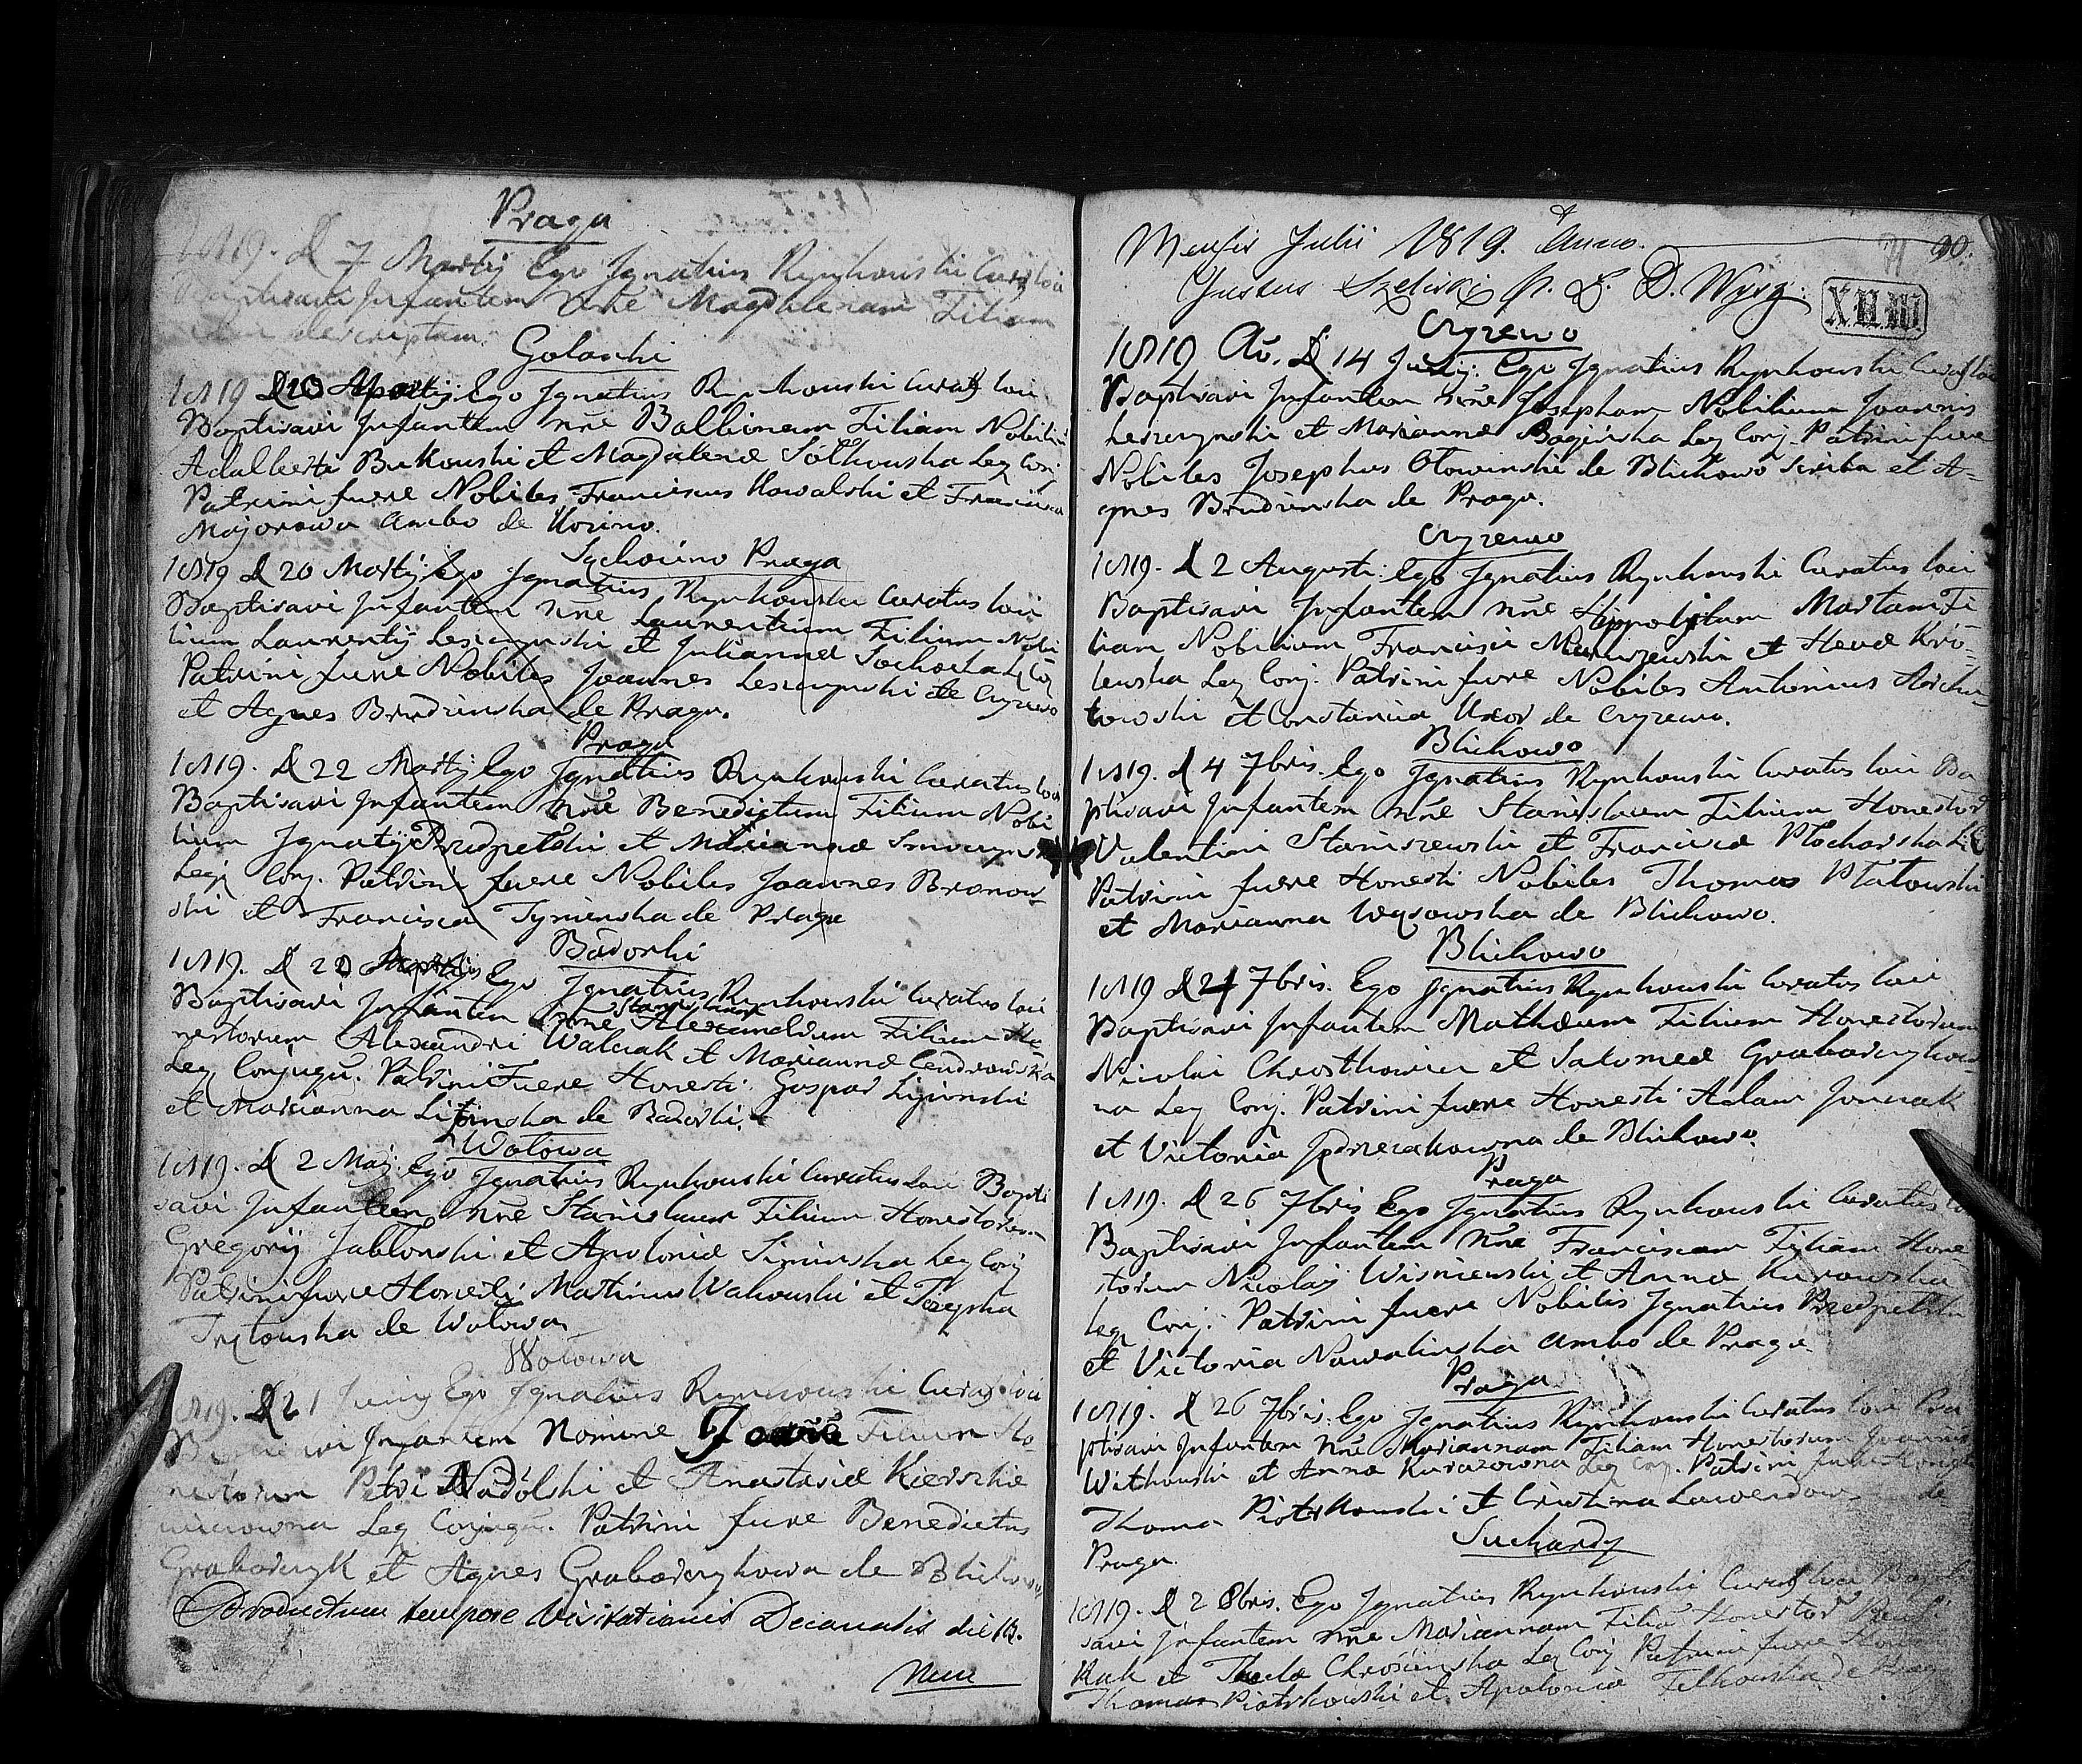 Praga
1819. D 7 Martij Ego Ignatius Rynkowski Curat. loci
Baptisavi Infantem Nne Magdalenam Filiam
descriptam.
Golanki
1819 D 20 Ego Ignatius Rynkowski Curat. loci
Baptisavi Infantem Nne Balbinam Filiam Nobiliū
Adalberti Bukowski et Magdalenæ Sotkowska Leg Conj
Patrini fuere Nobiles Franciscus Kowalski et Francisca
Majorowa Ambo de Kosino.
Sychocino Praga
1819 D 20 Martij Ego Ignatius Rynkowski Curatus loci
Baptisavi Infantem Nne Laurentium Filium Nobi
lium Laurentij Lesczynski et Juliannæ Sochocka L Con
Patrini fuere Nobiles Joannes Lesczynski de Cyzewo
et Agnes Brudzinska de Praga.
Praga
1819. D 22 Martij Ego Ignatius Rynkowski Curatus loci
Baptisavi Infantem Nne Benedictum Filium Nobi
lium Ignatij Przedpelski et Mariannæ
Legi Conj. Patrini fuere Nobiles Joannes Bronow-
ski et Francisca Tyminska de Praga
Bądorki
1819. D 22 Ego Ignatius Rynkowski Curatus loci
Stanislaum
Baptisavi Infantem Nne Alexandrum Filium Ho
nestorum Alexandri Walczak et Mariannæ Cendrowska
Leg Conjugū. Patrini Fuere Honesti Gaspar Liginski
et Marcianna de
Wotowa
1819. D 2 Maj. Ego Ignatius Rynkowski Curatus Loci Bapti
savi Infantem Nne Stanislaum Filium Honestorum
Gregorij Jabłonski et Apoloniæ Siminska Leg Conj
Patrini fuere Honesti Martinus Wakowski et Jozepha
de Wotowa
Wotowa
1819. D 21 Junij Ego Ignatius Rynkowski Curat. loci
Infantem Nomine Filium Ho
nestorum Petri Nadolski et Anastasiæ Kierszkie
wiczowna Leg Conjugū. Patrini fuere Benedictus
Grabarczyk et Agnes Grabarczykowa de Blichowo
Productum tempore Visitationis Decanalis die 18.
Mensis Julii 1819. Anno. 90.
Justus D. Wysz.
XIIIII
Cyzewo
1819 Aō. D 14 Julij. Ego Ignatius Rynkowski Curat. loci
Baptisavi Infantem Nne Josepham Nobilium Joannis
Lesczynski et Mariannæ Bagińska Leg Conj. Patrini fuere
Nobiles Josephus Otowinski de Blichowo Scriba et A=
gnes Brudzinska de Praga.
Cyzewo
1819. D 2 Augusti Ego Ignatius Rynkowski Curatus loci
Baptisavi Infantem Nne Hippolytam Martam Fi
liam Nobilium Francisci et Kró=
lewska Leg Conj. Patrini fuere Nobiles Antonius
towski et Constancia Uxor de Cyzewo.
Blichowo
1819. D 4 7bris. Ego Ignatius Rynkowski Curatus loci Ba
ptisavi Infantem Nne Stanislaum Filium Honestor
Valentini Staniszewski et Franciscæ Płocharska L C
Patrini fuere Honesti Nobiles Thomas Płatowski
et Marianna Wąsowska de Blichowo.
Blichowo
1819 D 24 7bris. Ego Ignatius Rynkowski Curatus loci
Baptisavi Infantem Mathæum Filium Honestorum
Nicolai et Salomeæ Grabarczykow-
na Leg Conj. Patrini fuere Honesti Adam Jonczak
et Victoria de Blichowo.
Praga
1819. D 26 7bris Ego Ignatius Rynkowski Curatus lo
Baptisavi Infantem Nne Franciscam Filiam Hone
storum Nicolaj Wisniewski et Annæ Kurowska
Leg Conj. Patrini fuere Nobilis Ignatius Przedpelski
et Victoria Nowalinska Ambo de Praga
Praga
1819. D 26 7bris. Ego Ignatius Rynkowski Curatus loci Ba
ptisavi Infantem Nne Mariannam Filiam Honestorum Joannis
Witkowski et Annæ Kurazowna Leg Conj. Patrini fuere Honesti
Thomas Piotrkowski et Cristina de
Praga.
Suchardy
1819. D 2 8bris. Ego Ignatius Rynkowski Curat. loci Bapti
savi Infantem Nne Mariannam Filiā Honestor
Kuk et Theclæ Chrościnska Leg Conj Patrini fuere Honesti
Thomas Piotrkowski et Apolonia de